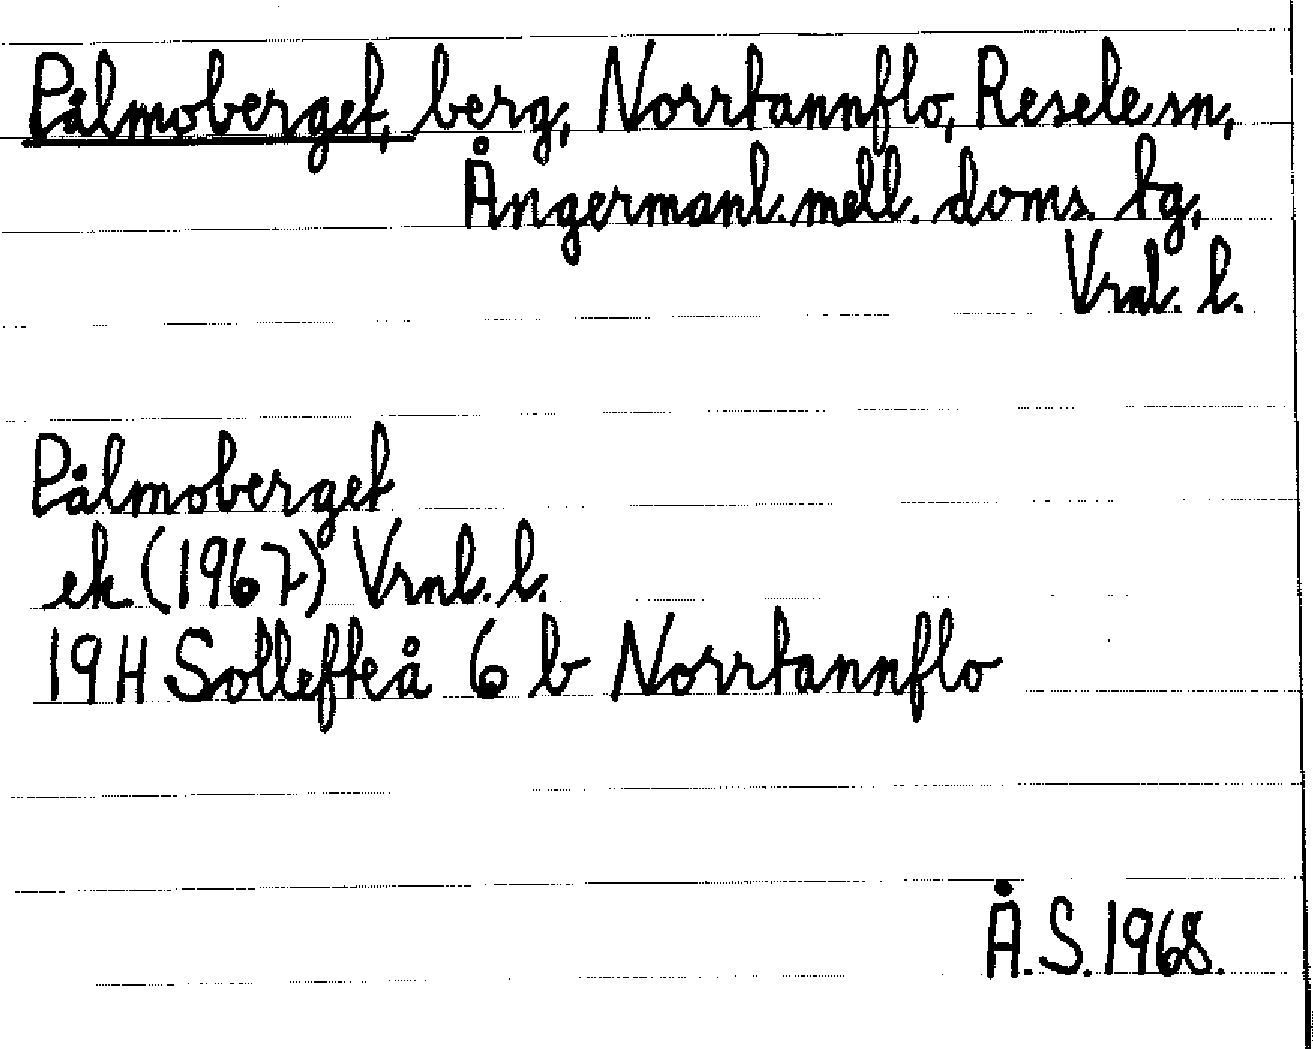 Pålmoberget, berg, Norrtannflo, Resele sn,
Ångermanl. mell. doms. tg,
Vrnl. l.
Pålmoberget
ek (1967) Vrnl. l.
19H Sollefteå 6 b Norrtannflo
Å.S. 1968.